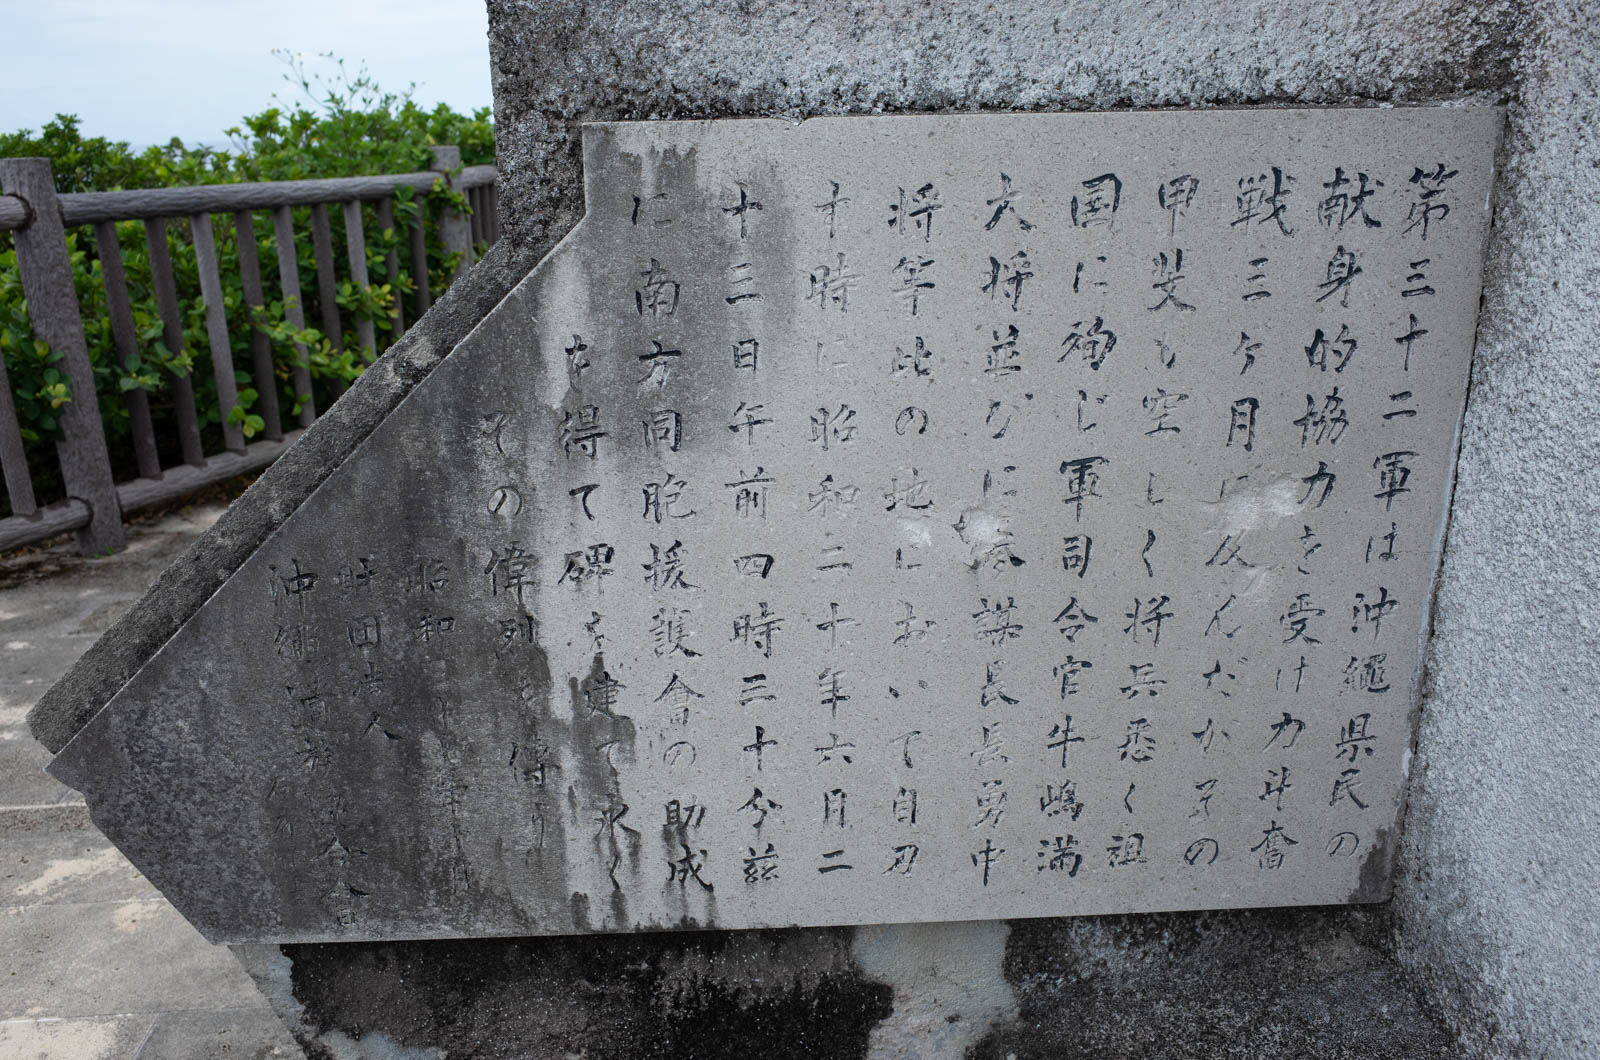 第三十二軍は沖縄県民の
献身的協力を受け力斗奮
戦三ヶ月に及んだがその
甲斐も空しく将兵悉く祖
国に殉じ軍司令官牛嶋満
大将並びに参謀長長勇中
将等此の地において自刃
す時に昭和二十年六月二
十三日午前四時三十分茲
に南方同胞援護會の助成
を得て碑を建て永く
その偉列を傳う
昭和三十 年 月
財団法人
沖縄 協会